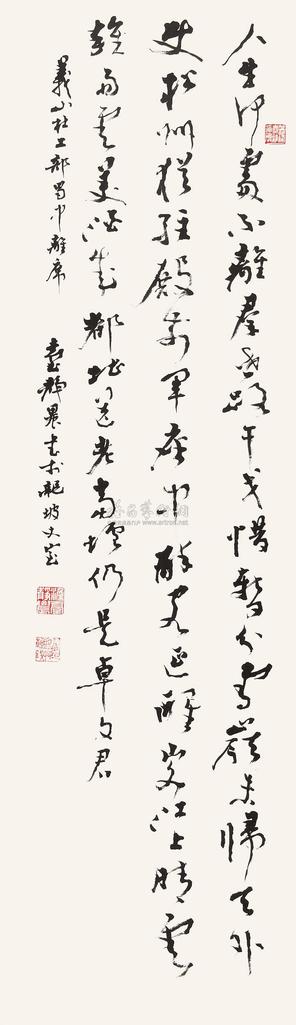 人生何處不離羣世路干戈惜暫分雪嶺未歸天外
使松州猶駐殿前軍座中醉客延醒客江上晴雲
雜雨雲美酒成都堪送老當壚仍是卓文君
義山杜工部蜀中離席
臺靜農書於龍坡丈室